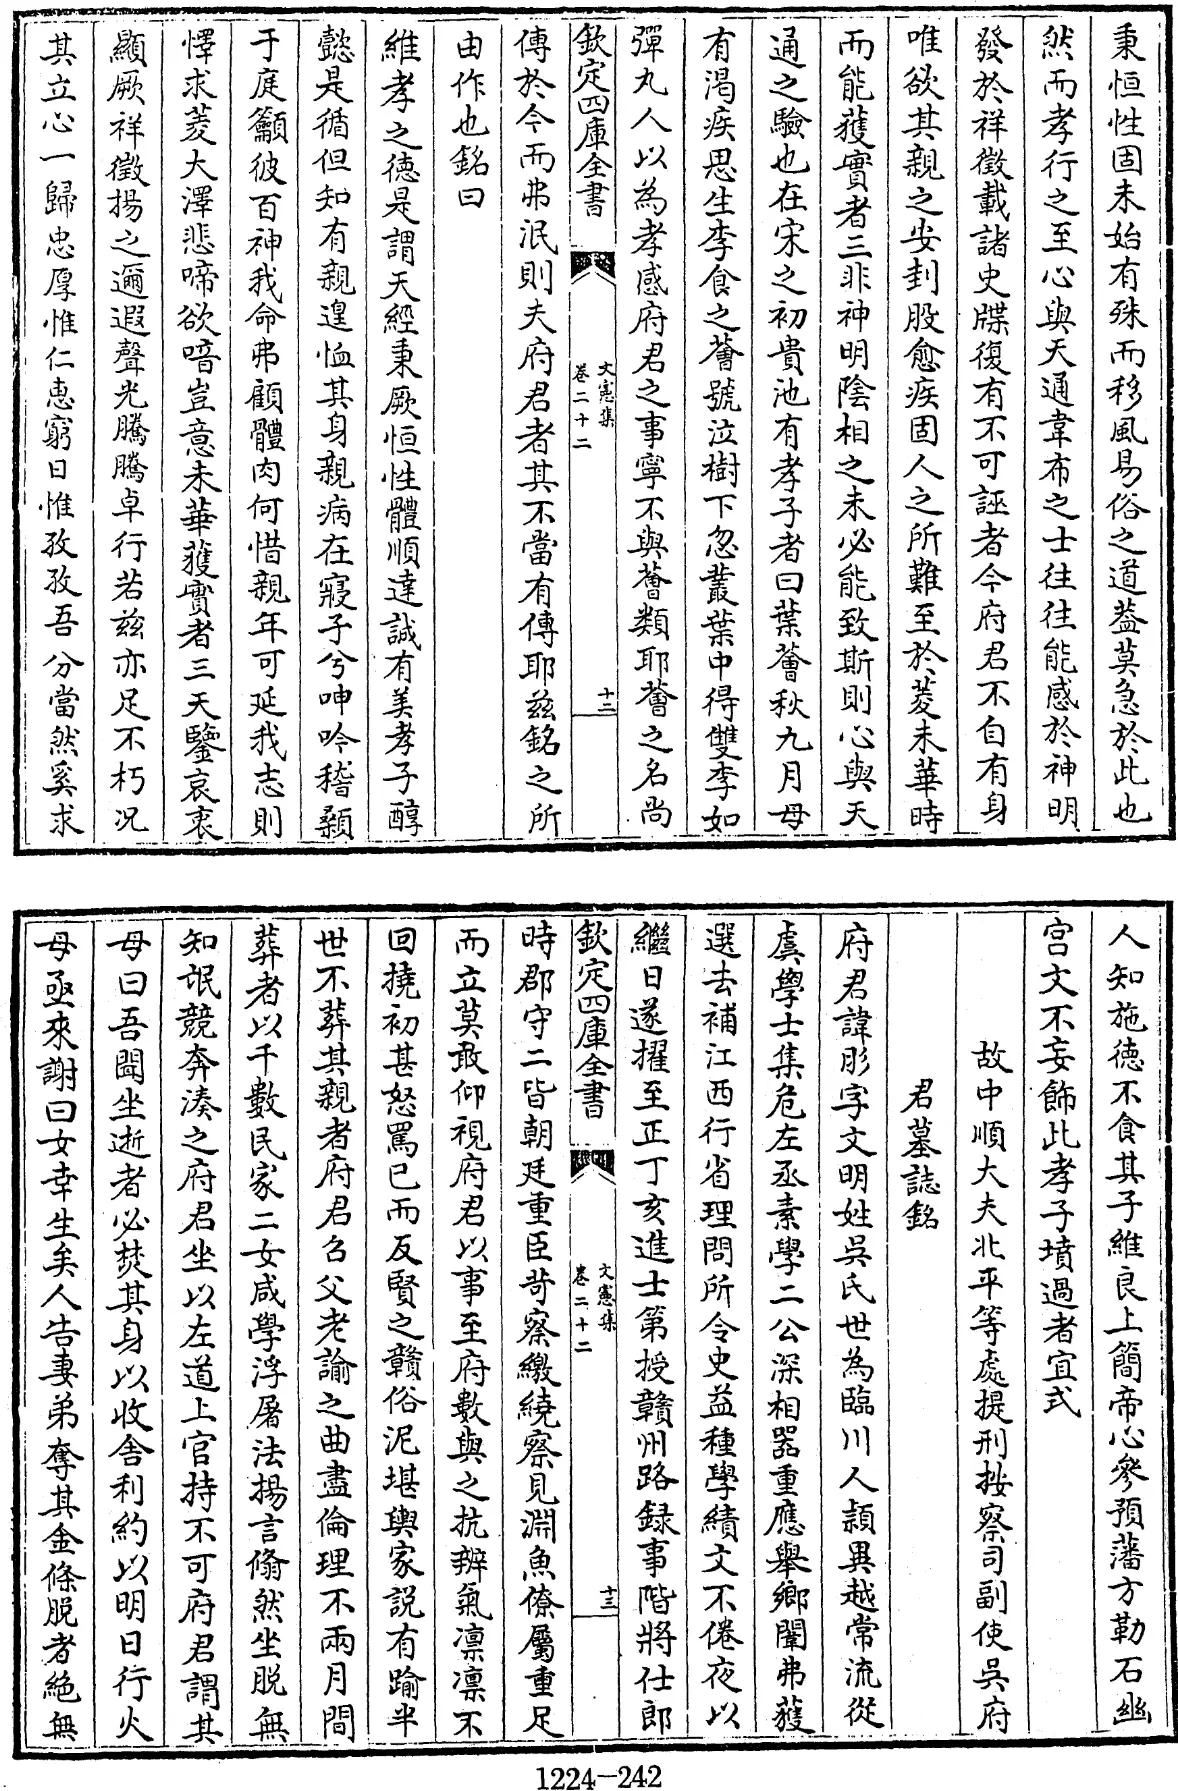 秉恒性固未始有殊而移風易俗之道葢莫急於此也
然而孝行之至心與天通韋布之士往往能感於神明
發於祥徵載諸史牒復有不可誣者今府君不自有身
唯欲其親之安刲股愈疾固人之所難至於菱未華時
而能獲實者三非神明陰相之未必能致斯則心與天
通之驗也在宋之初貴池有孝子者曰葉薈秋九月母
有渴疾思生李食之薈號泣樹下忽叢葉中得雙李如
彈丸人以為孝感府君之事寧不與薈類耶薈之名尚
欽定四庫全書
文憲集
卷二十二
十二
傳於今而弗泯則夫府君者其不當有傳耶兹銘之所
由作也銘曰
維孝之徳是謂天經秉厥恒性體順達誠有美孝子醇
懿是循但知有親遑恤其身親病在寢子兮呻吟稽顙
于庭籲彼百神我命弗顧體肉何惜親年可延我志則
懌求菱大澤悲啼欲喑豈意未華獲實者三天鑒哀衷
顯厥祥徵揚之邇遐聲光騰騰卓行若兹亦足不朽况
其立心一歸忠厚惟仁惠窮日惟孜孜吾分當然奚求
人知施徳不食其子維良上簡帝心參預藩方勒石幽
宫文不妄飾此孝子墳過者宜式
故中順大夫北平等處提刑按察司副使吳府
君墓誌銘
府君諱彤字文明姓吳氏世為臨川人穎異越常流從
虞學士集危左丞素學二公深相器重應舉鄉闈弗獲
選去補江西行省理問所令史益種學績文不倦夜以
繼日遂擢至正丁亥進士第授贛州路録事階將仕郎
欽定四庫全書
文憲集
卷二十二
十三
時郡守二皆朝廷重臣苛察繳繞察見淵魚僚屬重足
而立莫敢仰視府君以事至府數與之抗辨氣凛凛不
回撓初甚怒罵已而反賢之贛俗泥堪輿家説有踰半
世不葬其親者府君召父老諭之曲盡倫理不兩月間
葬者以千數民家二女咸學浮屠法揚言翛然坐脱無
知氓競奔湊之府君坐以左道上官持不可府君謂其
母曰吾聞坐逝者必焚其身以收舍利約以明日行火
母亟來謝曰女幸生矣人告妻弟奪其金條脱者絶無
1224-242